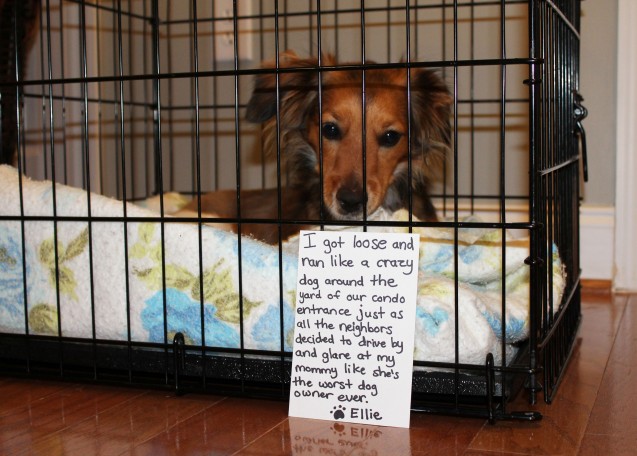 I got loose and
ran like a crazy
dog around the
yard of our condo
entrance just as
all the neighbors
decided to drive by
and glare at my
mommy like she's
the worst dog
owner ever.
Ellie